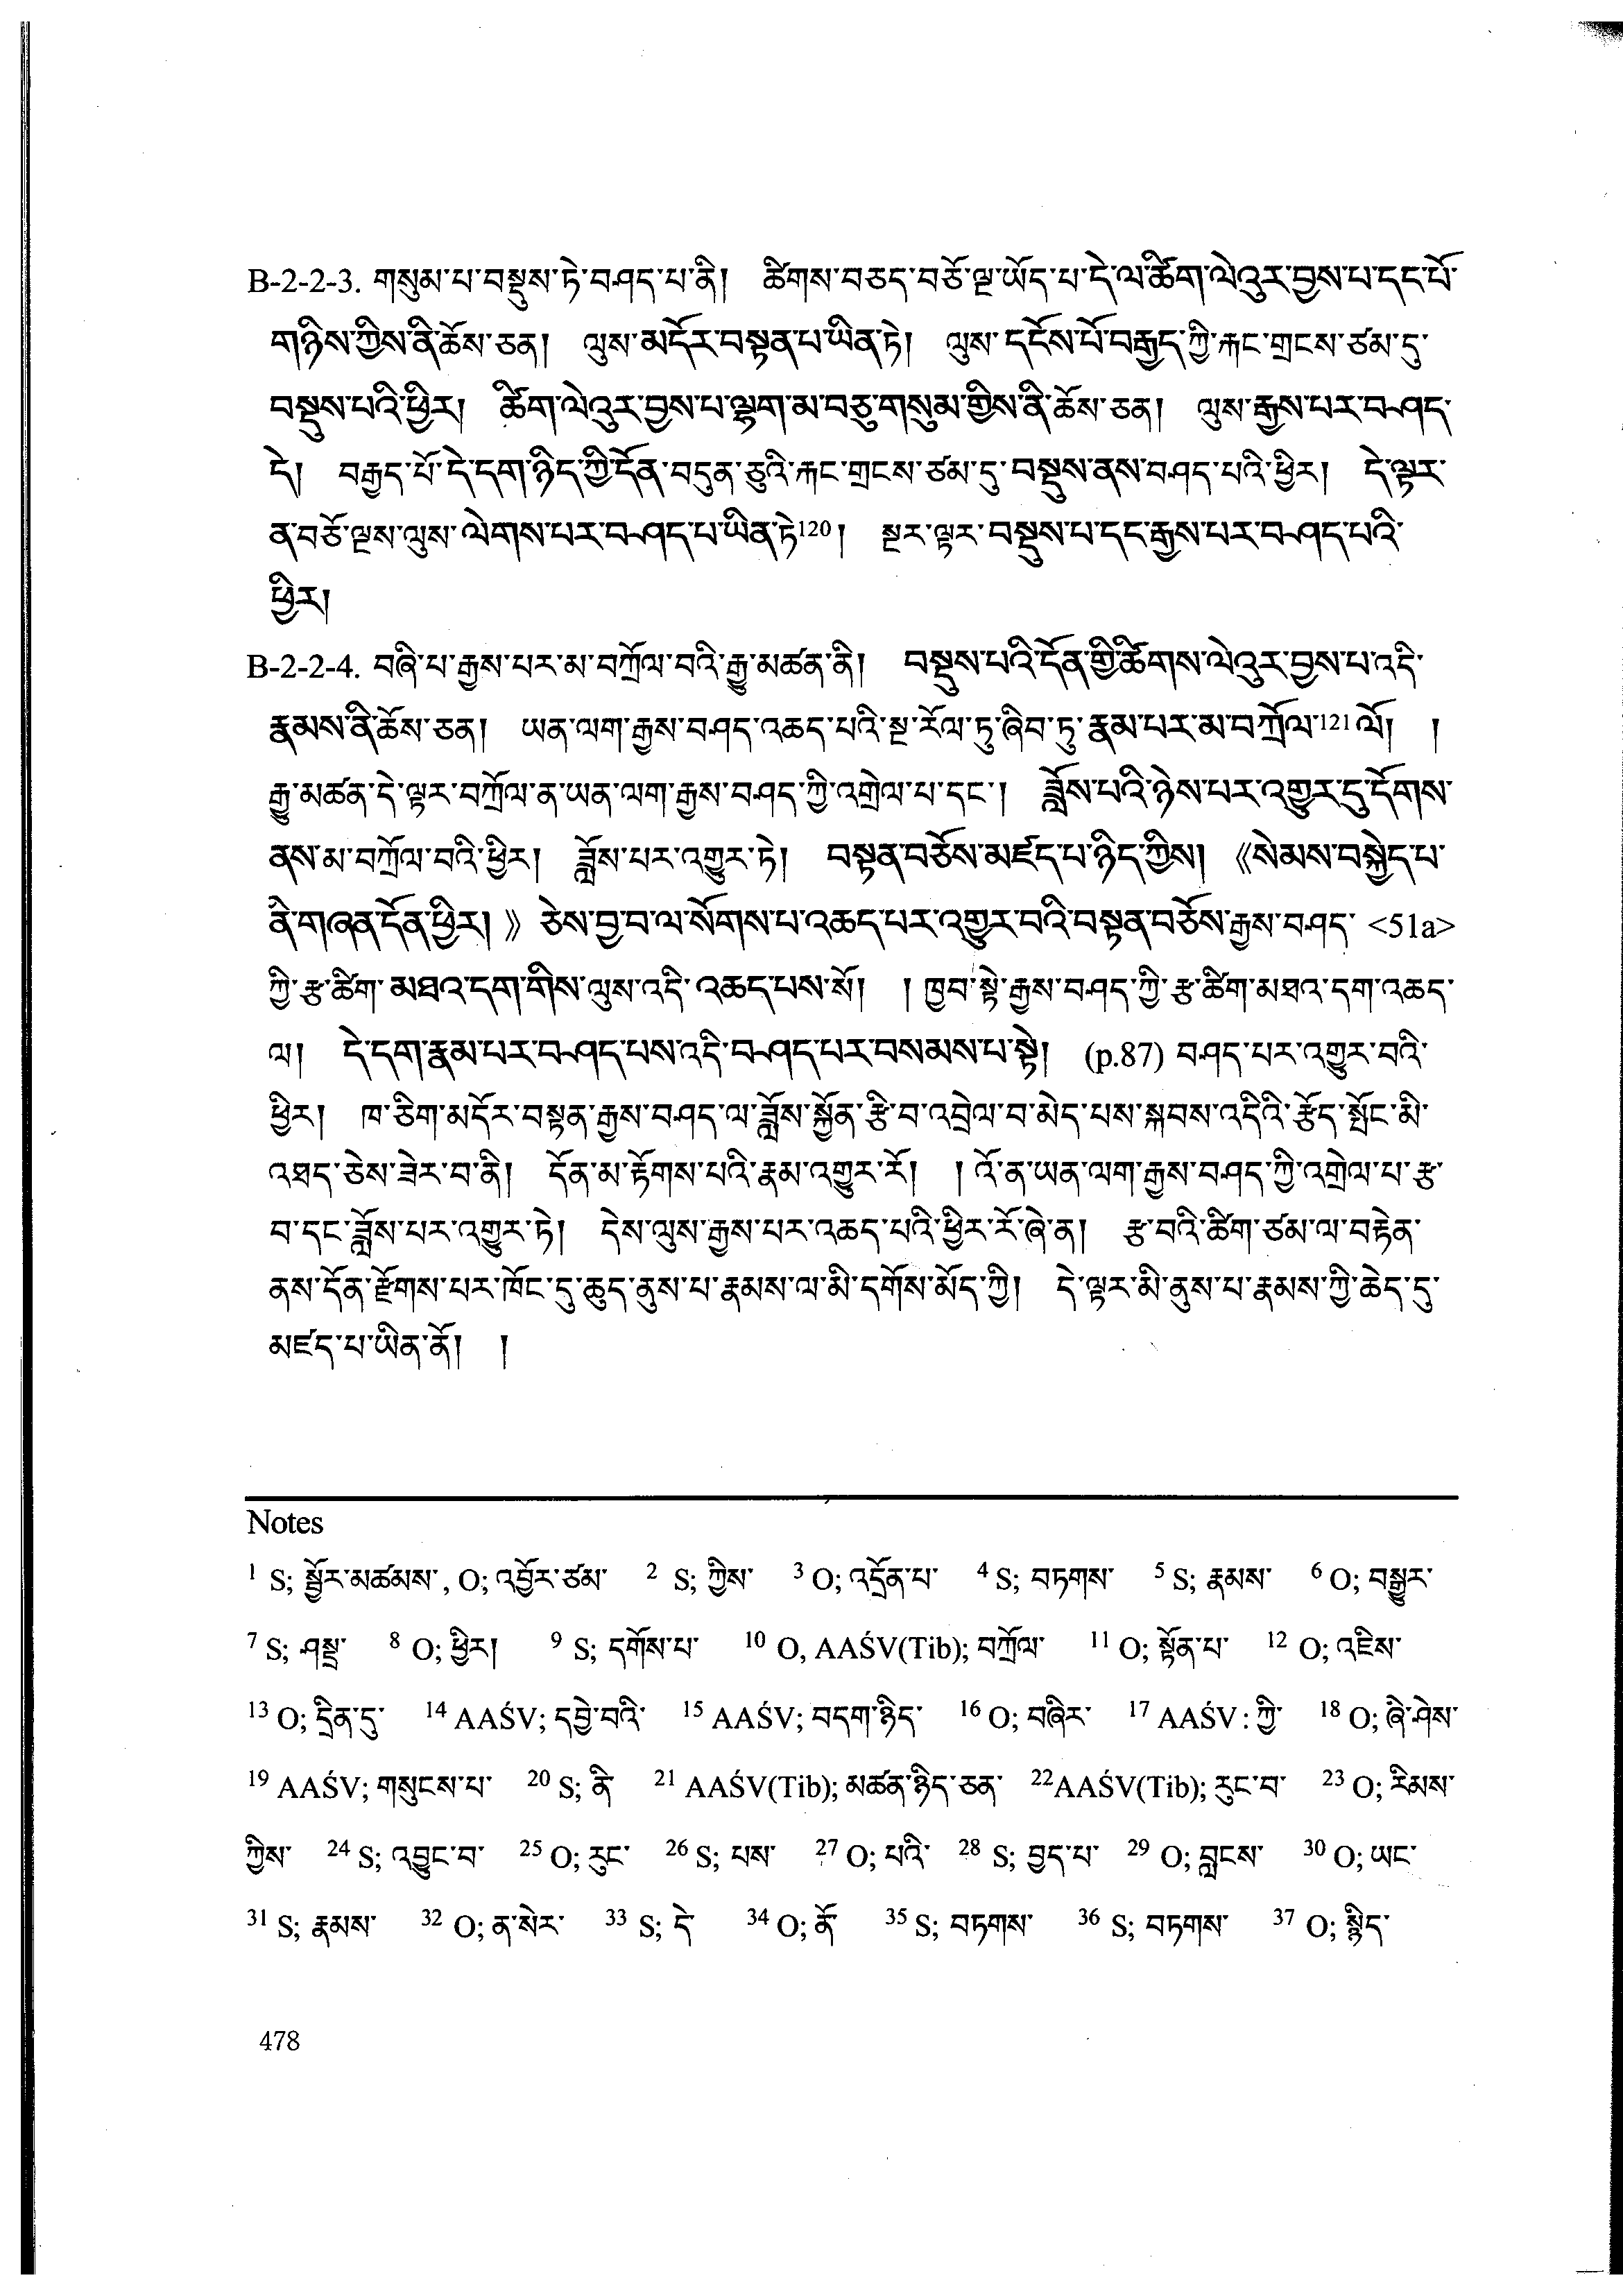 B-2-2-3. གསུམ་པ་བསྡུས་ཏེ་བཤད་པ་ནི། ཚིགས་བཅད་བཅོ་ལྔ་ཡོད་པ་དེ་ལ་ཚིག་ལེའུར་བྱས་པ་དང་པོ་
གཉིས་ཀྱིས་ནི་ཆོས་ཅན། ལུས་མདོར་བསྟན་པ་ཡིན་ཏེ། ལུས་དངོས་པོ་བརྒྱད་ཀྱི་རྐང་གྲངས་ཙམ་དུ་
བསྡུས་པའི་ཕྱིར། ཚིག་ལེའུར་བྱས་པ་ལྷག་མ་བཅུ་གསུམ་གྱིས་ནི་ཆོས་ཅན། ལུས་རྒྱས་པར་བཤད་
དེ། བརྒྱད་པོ་དེ་དག་ཉིད་ཀྱི་དོན་བདུན་ཅུའི་རྐང་གྲངས་ཙམ་དུ་བསྡུས་ནས་བཤད་པའི་ཕྱིར། དེ་ལྟར་
ན་བཅོ་ལྔས་ལུས་ལེགས་པར་བཤད་པ་ཡིན་ཏེ120། སྔར་ལྟར་བསྡུས་པ་དང་རྒྱས་པར་བཤད་པའི་
ཕྱིར།
B-2-2-4. བཞི་པ་རྒྱས་པར་མ་བཀྲོལ་བའི་རྒྱུ་མཚན་ནི། བསྡུས་པའི་དོན་གྱི་ཚིགས་ལེའུར་བྱས་པ་འདི་
རྣམས་ནི་ཆོས་ཅན། ཡན་ལག་རྒྱས་བཤད་འཆད་པའི་སྔ་རོལ་ཏུ་ཞིབ་ཏུ་རྣམ་པར་མ་བཀྲོལ་121ལོ། །
རྒྱུ་མཚན་དེ་ལྟར་བཀྲོལ་ན་ཡན་ལག་རྒྱས་བཤད་ཀྱི་འགྲེལ་པ་དང་། ཟློས་པའི་ཉེས་པར་འགྱུར་དུ་དོགས་
ནས་མ་བཀྲོལ་བའི་ཕྱིར། ཟློས་པར་འགྱུར་ཏེ། བསྟན་བཅོས་མཛད་པ་ཉིད་ཀྱིས། 《སེམས་བསྐྱེད་པ་
ནི་གཞན་དོན་ཕྱིར། 》 ཅེས་བྱ་བ་ལ་སོགས་པ་འཆད་པར་འགྱུར་བའི་བསྟན་བཅོས་རྒྱས་བཤད་ <51a>
ཀྱི་རྩ་ཚིག་མཐའ་དག་གིས་ལུས་འདི་འཆད་པས་སོ། །ཁྱབ་སྟེ་རྒྱས་བཤད་ཀྱི་རྩ་ཚིག་མཐའ་དག་འཆད་
ལ། དེ་དག་རྣམ་པར་བཤད་པས་འདི་བཤད་པར་བསམས་པ་སྟེ། (p.87) བཤད་པར་འགྱུར་བའི་
ཕྱིར། ཁ་ཅིག་མདོར་བསྟན་རྒྱས་བཤད་ལ་ཟློས་སྐྱོན་རྩི་བ་འབྲེལ་བ་མེད་པས་སྐབས་འདིའི་རྩོད་སྤོང་མི་
འཐད་ཅེས་ཟེར་བ་ནི། དོན་མ་རྟོགས་པའི་རྣམ་འགྱུར་རོ། །འོ་ན་ཡན་ལག་རྒྱས་བཤད་ཀྱི་འགྲེལ་པ་རྩ་
བ་དང་ཟློས་པར་འགྱུར་ཏེ། དེས་ལུས་རྒྱས་པར་འཆད་པའི་ཕྱིར་རོ་ཞེ་ན། རྩ་བའི་ཚིག་ཙམ་ལ་བརྟེན་
ནས་དོན་རྫོགས་པར་ཁོང་དུ་ཆུད་ནུས་པ་རྣམས་ལ་མི་དགོས་མོད་ཀྱི། དེ་ལྟར་མི་ནུས་པ་རྣམས་ཀྱི་ཆེད་དུ་
མཛད་པ་ཡིན་ནོ། །
Notes
1 S; སྦྱོར་མཚམས་, O; འབྱོར་ཙམ་ 2 S; ཀྱིས་ 3 O; འདྲོན་པ་ 4 S; བཏགས་ 5 S; རྣམས་ 6 O; བསྒྱུར་
7 S; ཤསྡྲ་ 8 O; ཕྱིར། 9 S; དགོས་པ་ 10 O, AAŚV(Tib); བཀྲོལ་ 11 O; སྟོན་པ་ 12 O; འཇིས་
13 O; དྲིན་དུ་ 14 AAŚV; དབྱེ་བའི་ 15 AAŚV; བདག་ཉིད་ 16 O; བཞིར་ 17 AAŚV: ཀྱི་ 18 O; ཞི་ཤེས་
19 AAŚV; གསུངས་པ་ 20 S; ནི་ 21 AAŚV(Tib); མཚན་ཉིད་ཅན་ 22AAŚV(Tib); རུང་བ་ 23 O; རིམས་
ཀྱིས་ 24 S; འབྱུང་བ་ 25 O; རུང་ 26 S; པས་ 27 O; པའི་ 28 S; བྱད་པ་ 29 O; བླངས་ 30 O; ཡང་
31 S; རྣམས་ 32 O; ན་སེར་ 33 S; དེ་ 34 O; ནོ་ 35 S; བཏགས་ 36 S; བཏགས་ 37 O; སྙིད་
478